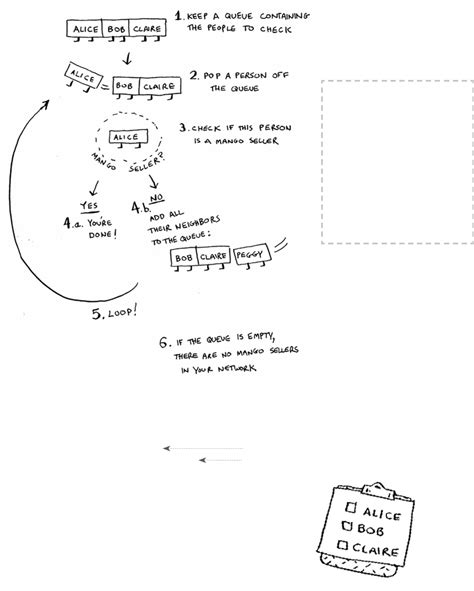 1. KEEP A QUEUE CONTAINING
THE PEOPLE TO CHECK
ALICE BOB CLAIRE
2. POP A PERSON OFF
THE QUEUE
ALICE
BOB CLAIRE
3. CHECK IF THIS PERSON
IS A MANGO SELLER
ALICE
MANGO SELLER?
YES
4.a. YOU'RE
DONE!
NO
4.b.
ADD ALL
THEIR NEIGHBORS
TO THE QUEUE:
BOB CLAIRE PEGGY
5. LOOP!
6. IF THE QUEUE IS EMPTY,
THERE ARE NO MANGO SELLERS
IN YOUR NETWORK
ALICE
BOB
CLAIRE